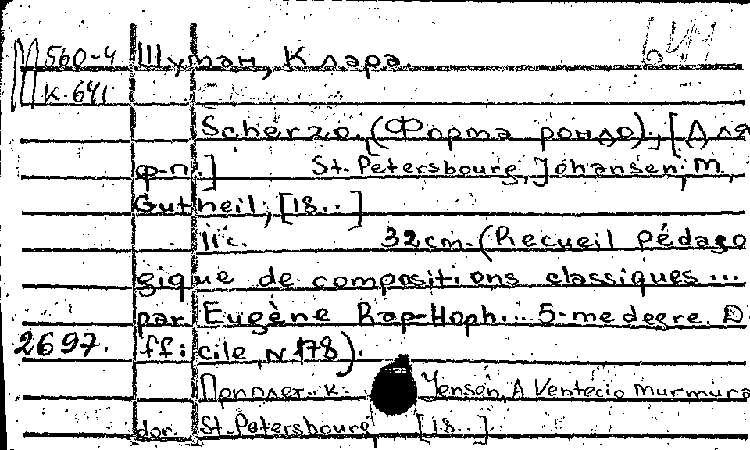 М 560-4 Шуман, Клара. 641
К-641
Scherzo. (Форма рондо). [Для
ф-п.] St. Petersbourg, Johansen; M,
Gutheil, [18..]
11 с. 32cm. (Recueil pédago
gique de compositions classiques ...
par Eugène Rap-Hoph... 5-me degre. D
2697. fficile, N 178).
Приплет. к: Yensen, A Ventecio murmura
dor. St. Petersbourg [18..]